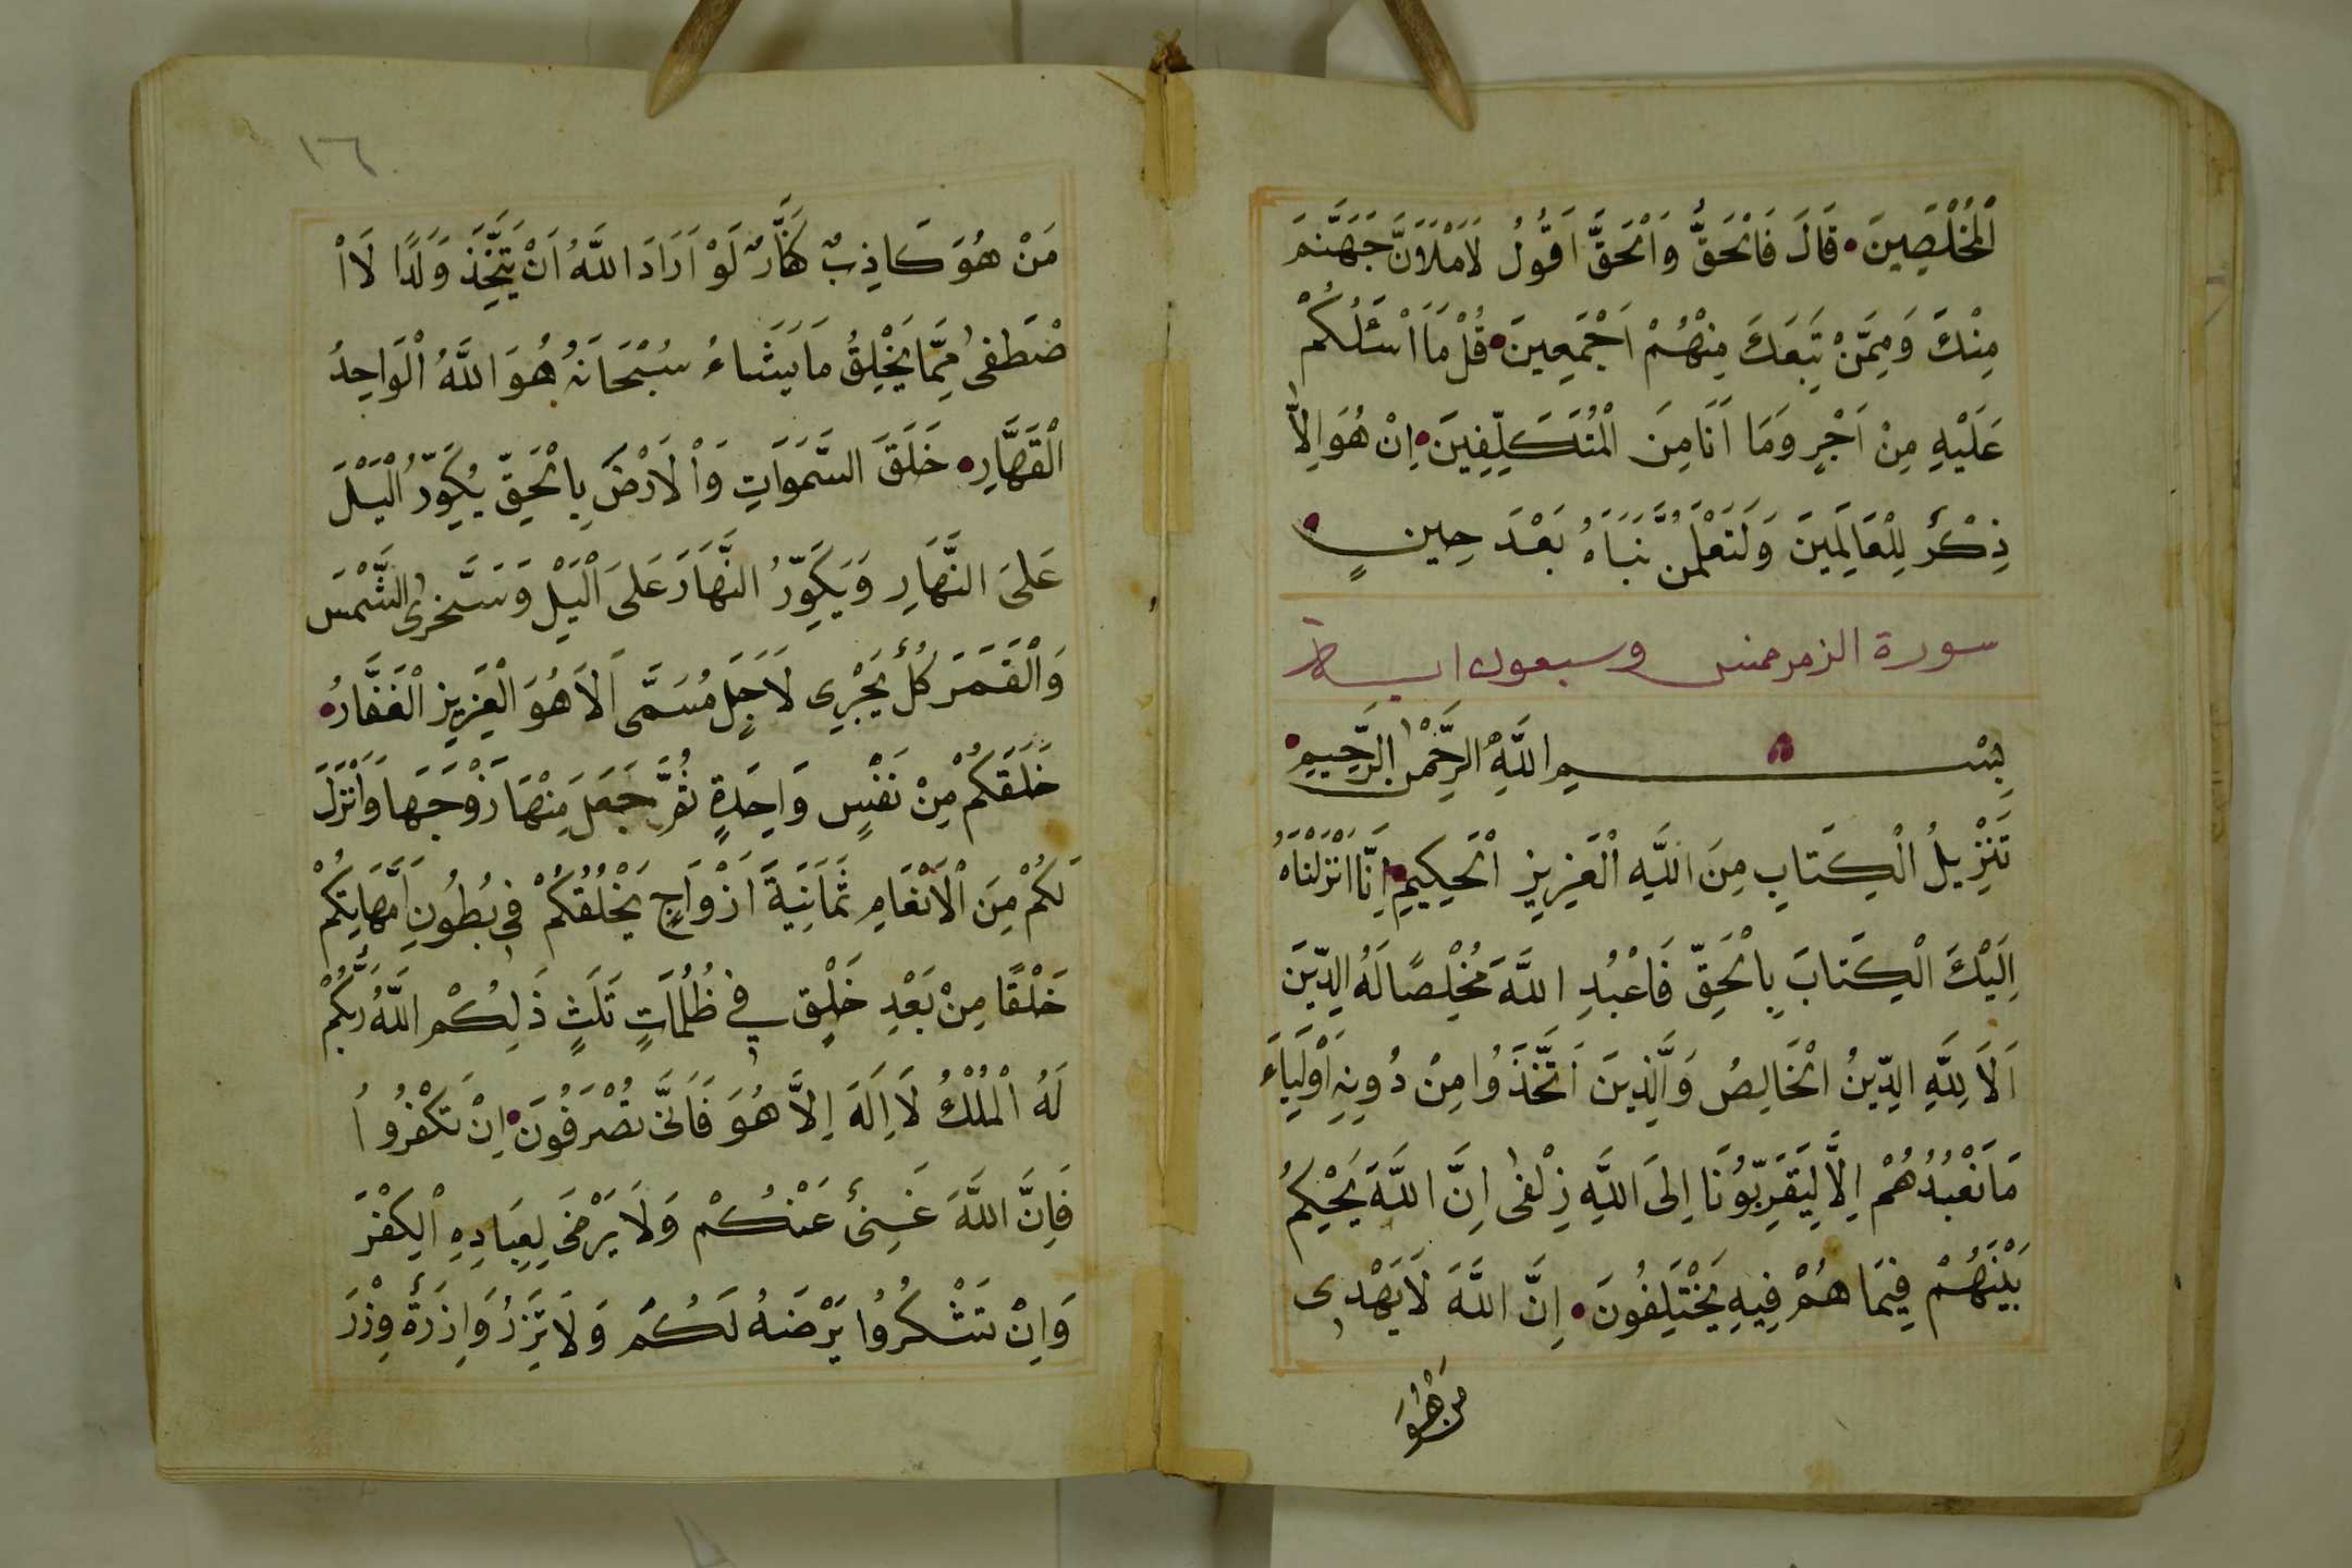 اَلْمُخْلَصِينَ قَالَ فَالْحَقُّ وَالْحَقَّ اَقُولُ لَاَمْلَاَنَّ جَهَنَّمَ
مِنْكَ وَمِمَّنْ تَبِعَكَ مِنْهُمْ اَجْمَعِينَ قُلْ مَا اَسْئَلُكُمْ
عَلَيْهِ مِنْ اَجْرٍ وَمَا اَنَا مِنَ الْمُتَكَلِّفِينَ اِنْ هُوَ اِلَّا
ذِكْرٌ لِلْعَالَمِينَ وَلَتَعْلَمُنَّ نَبَاَهُ بَعْدَ حِينٍ
سورة الزمر خمس وسبعون اية
بِسْمِ اللَّهِ الرَّحْمٰنِ الرَّحِيمِ
تَنْزِيلُ الْكِتَابِ مِنَ اللَّهِ الْعَزِيزِ الْحَكِيمِ اِنَّا اَنْزَلْنَاهُ
اِلَيْكَ الْكِتَابَ بِالْحَقِّ فَاعْبُدِ اللَّهَ مُخْلِصًا لَهُ الدِّينَ
اَلَا لِلَّهِ الدِّينُ الْخَالِصُ وَالَّذِينَ اتَّخَذُوا مِنْ دُونِهِ اَوْلِيَاءَ
مَا نَعْبُدُهُمْ اِلَّا لِيُقَرِّبُونَا اِلَى اللَّهِ زُلْفٰى اِنَّ اللَّهَ يَحْكُمُ
بَيْنَهُمْ فِيمَا هُمْ فِيهِ يَخْتَلِفُونَ اِنَّ اللَّهَ لَا يَهْدِى
مَنْ هُوَ
١٦
مَنْ هُوَ كَاذِبٌ كَفَّارٌ لَوْ اَرَادَ اللَّهُ اَنْ يَتَّخِذَ وَلَدًا لَاا
صْطَفٰى مِمَّا يَخْلُقُ مَا يَشَاءُ سُبْحَانَهُ هُوَ اللَّهُ الْوَاحِدُ
الْقَهَّارِ خَلَقَ السَّمَوَاتِ وَالْاَرْضَ بِالْحَقِّ يُكَوِّرُ الْيْلَ
عَلَى النَّهَارِ وَيُكَوِّرُ النَّهَارَ عَلَى الْيْلِ وَسَخَّرَ الشَّمْسَ
وَالْقَمَرَ كُلٌّ يَجْرِى لَاَجَلٍ مُسَمًّى اَلَا هُوَ الْعَزِيزِ الْغَفَّارُ
خَلَقَكُمْ مِنْ نَفْسٍ وَاحِدَةٍ ثُمَّ جَعَلَ مِنْهَا زَوْجَهَا وَاَنْزَلَ
لَكُمْ مِنَ الْاَنْعَامِ ثَمَانِيَةَ اَزْوَاجٍ يَخْلُقُكُمْ فِى بُطُونِ اُمَّهَاتِكُمْ
خَلْقًا مِنْ بَعْدِ خَلْقٍ فِى ظُلُمَاتٍ ثَلَثٍ ذَلِكُمُ اللَّهُ رَبُّكُمْ
لَهُ الْمُلْكُ لَا اِلَهَ اِلَّا هُوَ فَاَنَّى تُصْرَفُونَ اِنْ تَكْفُرُوا
فَاِنَّ اللَّهَ غَنِىٌّ عَنْكُمْ وَلَا يَرْضَى لِعِبَادِهِ الْكُفْرَ
وَاِنْ تَشْكُرُوا يَرْضَهُ لَكُمْ وَلَا تَزِرُ وَازِرَةٌ وِزْرَ